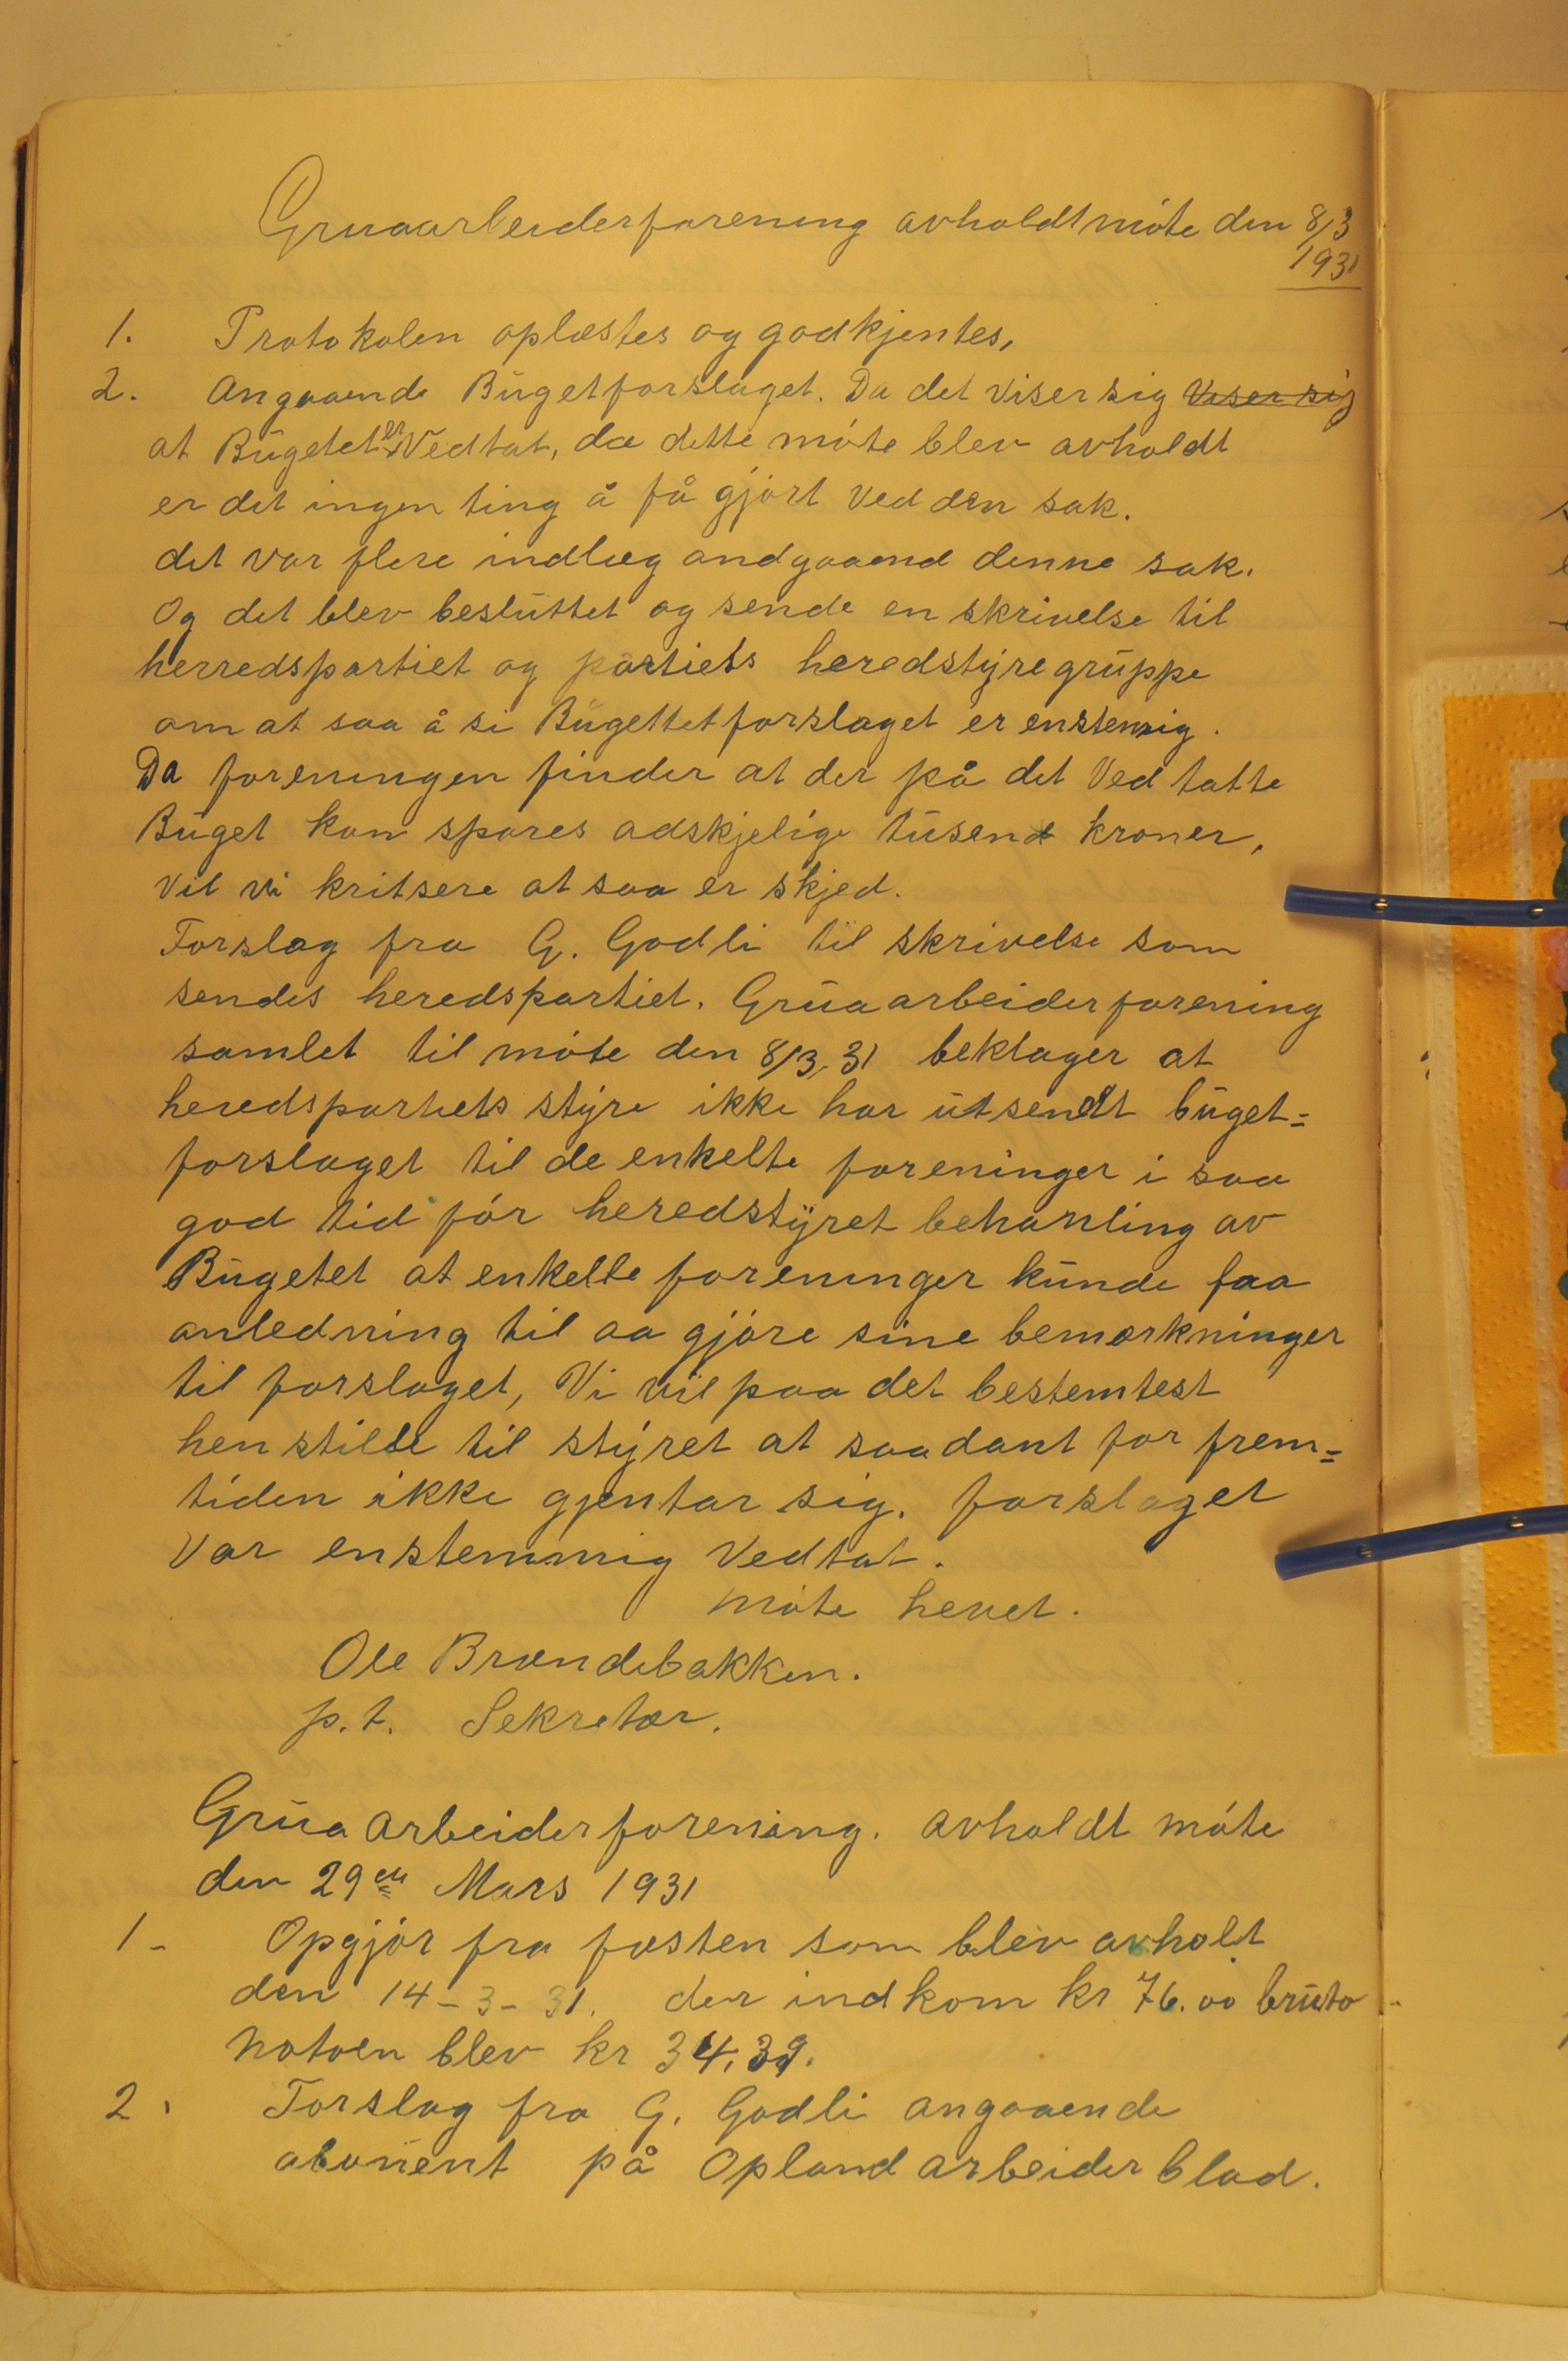 Gruaarbeiderforening avholdt møte den 8/3
1931
1. Protokolen oplæstes og godkjentes,
2. Angaaende Bugetforslaget. Da det viser sig viser sig
at Bugetet er Vedtat, da dette møte blev avholdt
er det ingen ting å få gjort ved den sak.
det var flere indlæg andgaaend denne sak.
Og det blev besluttet og sende en skrivelse til
herredspartiet og partiets heredstyregruppe
om at saa å si Bugettetforslaget er enstemig.
Da foreningen finder at der på det Vedtatte
Buget kan spares adskjelige tusend kroner,
vil vi kritsere at saa er skjed.
Forslag fra G. Godli til skrivelse som
sendes heredspartiet. Gruaarbeiderforening
samlet til møte den 8/3, 31 beklager at
heredspartiets styre ikke har utsendt buget=
forslaget til de enkelte foreninger i saa
god tid før heredstyret behanling av
Bugetet at enkelte foreninger kunde faa
anledning til aa gjøre sine bemærkninger
til forslaget, Vi vil paa det bestemtest
henstille til styret at saadant for frem=
tiden ikke gjentar sig. forslaget
var enstemmig Vedtat.
møte hevet.
Ole Brændebakken.
p.t. Sekretær.
Grua arbeiderforening. avholdt møte
den 29en Mars 1931
1- Opgjør fra festen som blev avholt
den 14-3-31. der indkom kr 76.00 bruto
notoen blev kr 34,39.
2. Forslag fra G. Godli angaaende
abonent på Opland arbeiderblad.